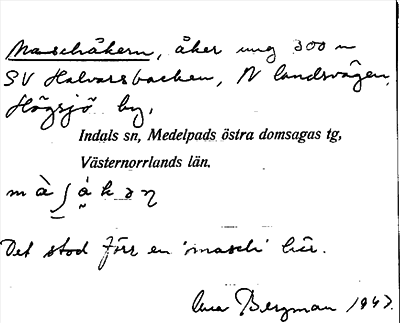 Maschåkern, åker ung 300 m
SV Halvarsbacken, N landsvägen,
Högsjö by,
Indals sn, Medelpads östra domsagas tg,
Västernorrlands län.
màʃákəɳ
Det stod förr en 'masch' här.
Bergman 1943.